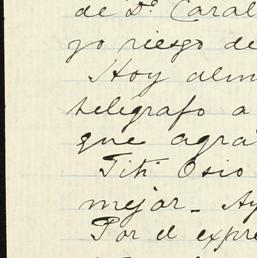 de D.ª Caral
go riesgo de
Hoy alm
telégrafo a
que agra
Titi Osio
mejor. Ay
Por el expre